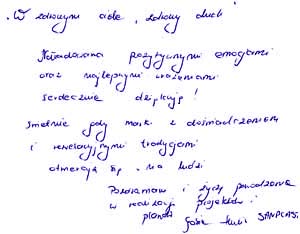 "W zdrowym ciele, zdrowy duch"
Naładowana pozytywnymi emocjami
oraz najlepszymi wrażeniami
serdecznie dziękuję!
Świetnie gdy marki z doświadczeniem
i rewelacyjnymi tradycjami
otwierają się na ludzi
Pozdrawiam i życzę powodzenia
w realizacji projektów i
planów
SANPLAST